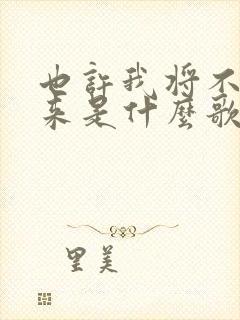 也許我將不
来是什麼歌
里美